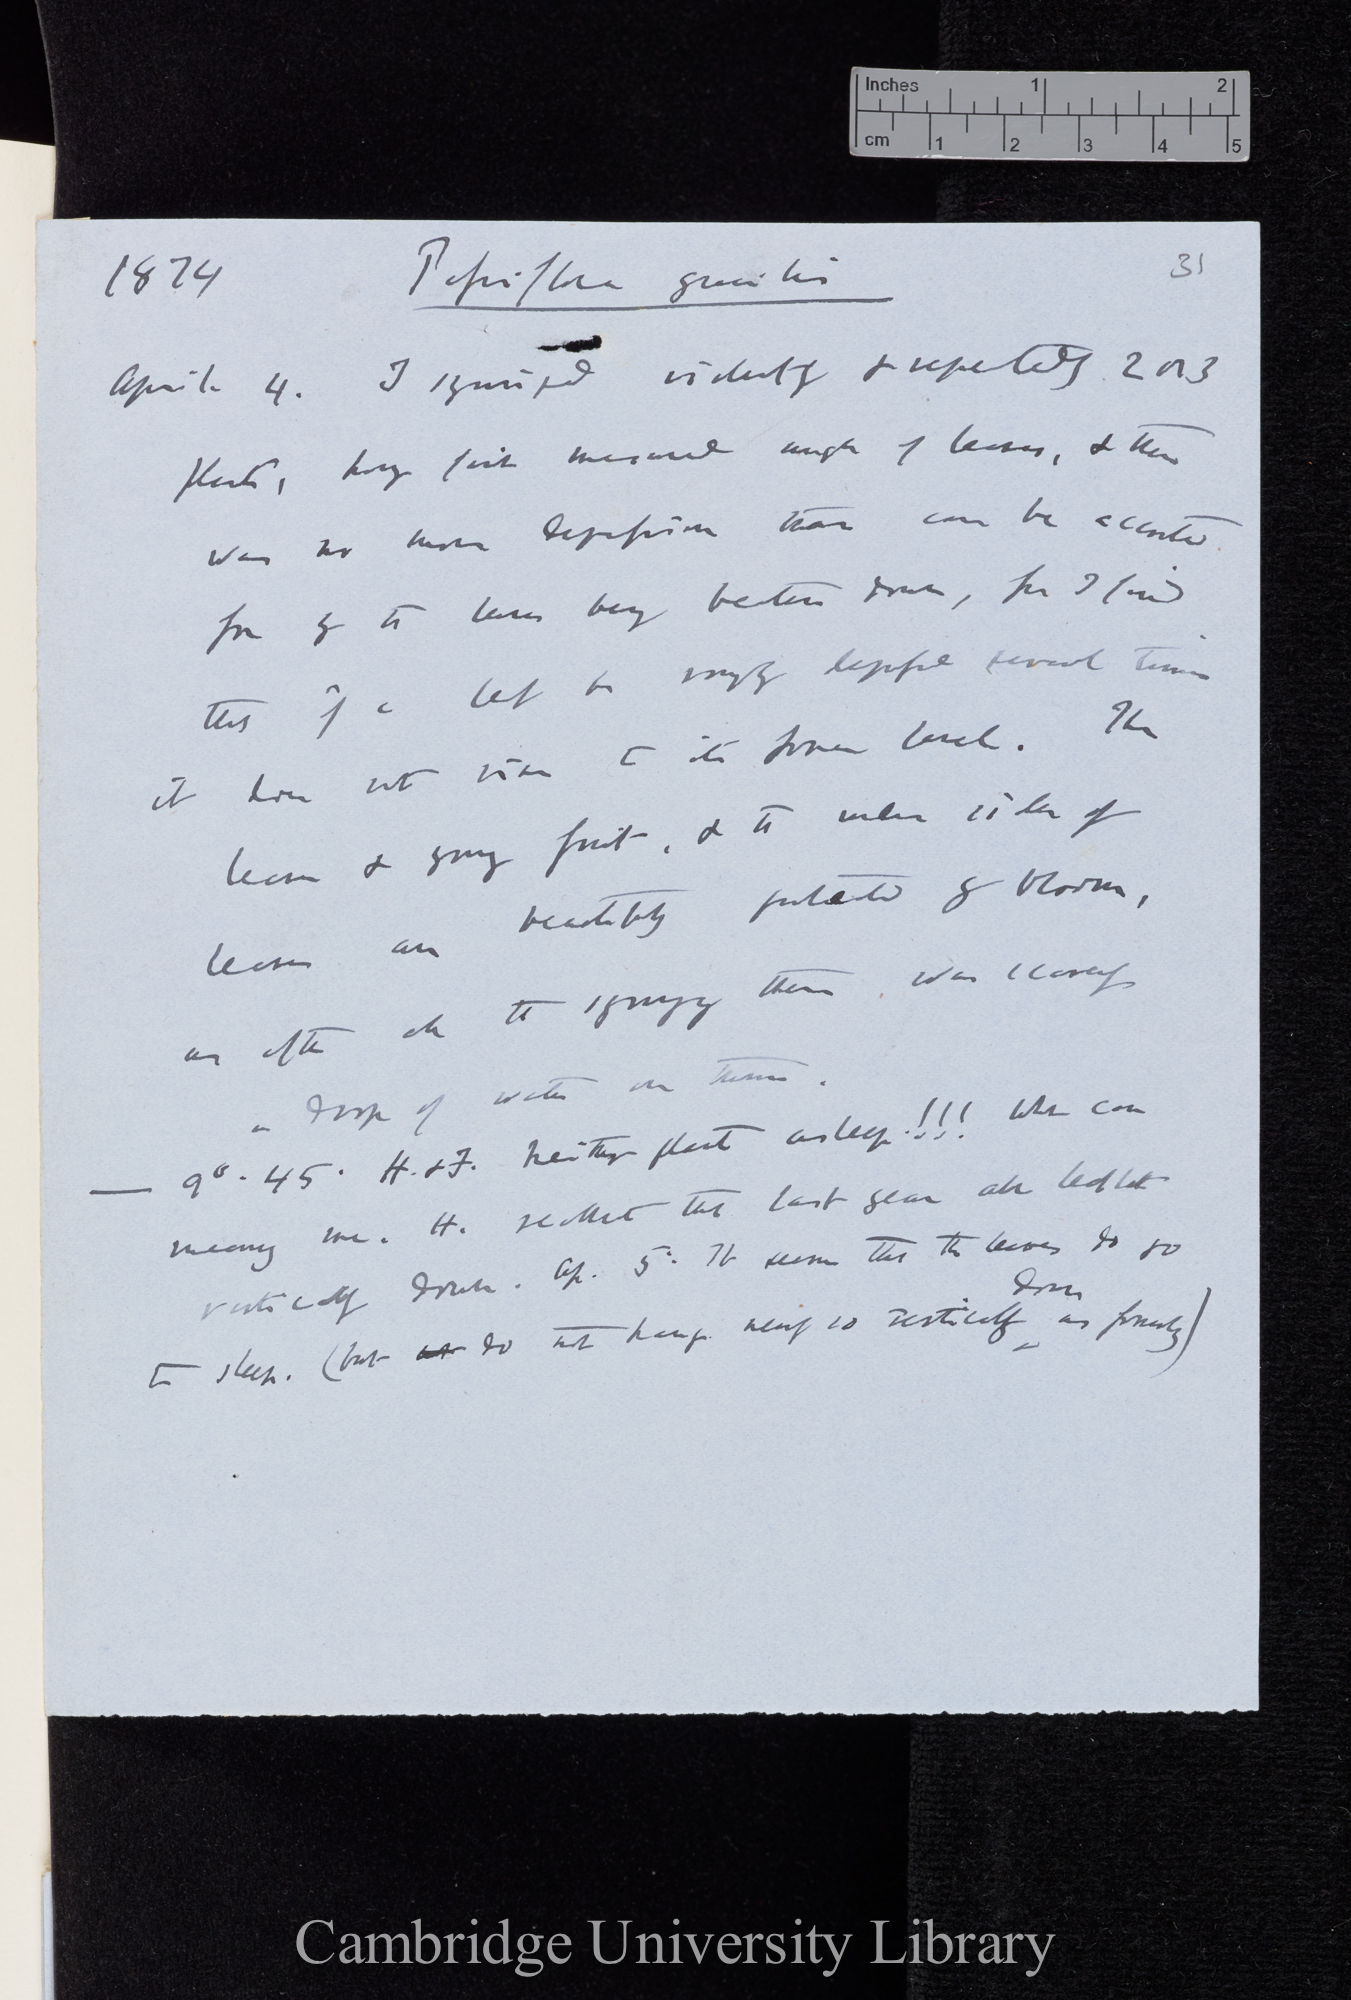 Inches 1 2
cm 1 2 3 4 5
1874 Passiflora gracilis 31
April 4. I syringed violently & repeatedly 2 or 3
plants, having first measured angle of leaves, & there
was no more depression than can be accounted
for by the leaves being beaten down, for I find
that if a leaf be simply depressed several times
it does not rise to its former level. The
leaves & young fruit, & the under sides of
leaves are beautifully protected by bloom,
as after all the syringing there was scarcely
a drop of water on them.
— 9°. 45' H. & F. neither plant asleep!!! What can
meaning me. H. recollect that last year all leaflets
vertically down. Ap. 5. It seems that the leaves do go
to sleep. (but do not hang nearly so vertically down as formerly)
Cambridge University Library